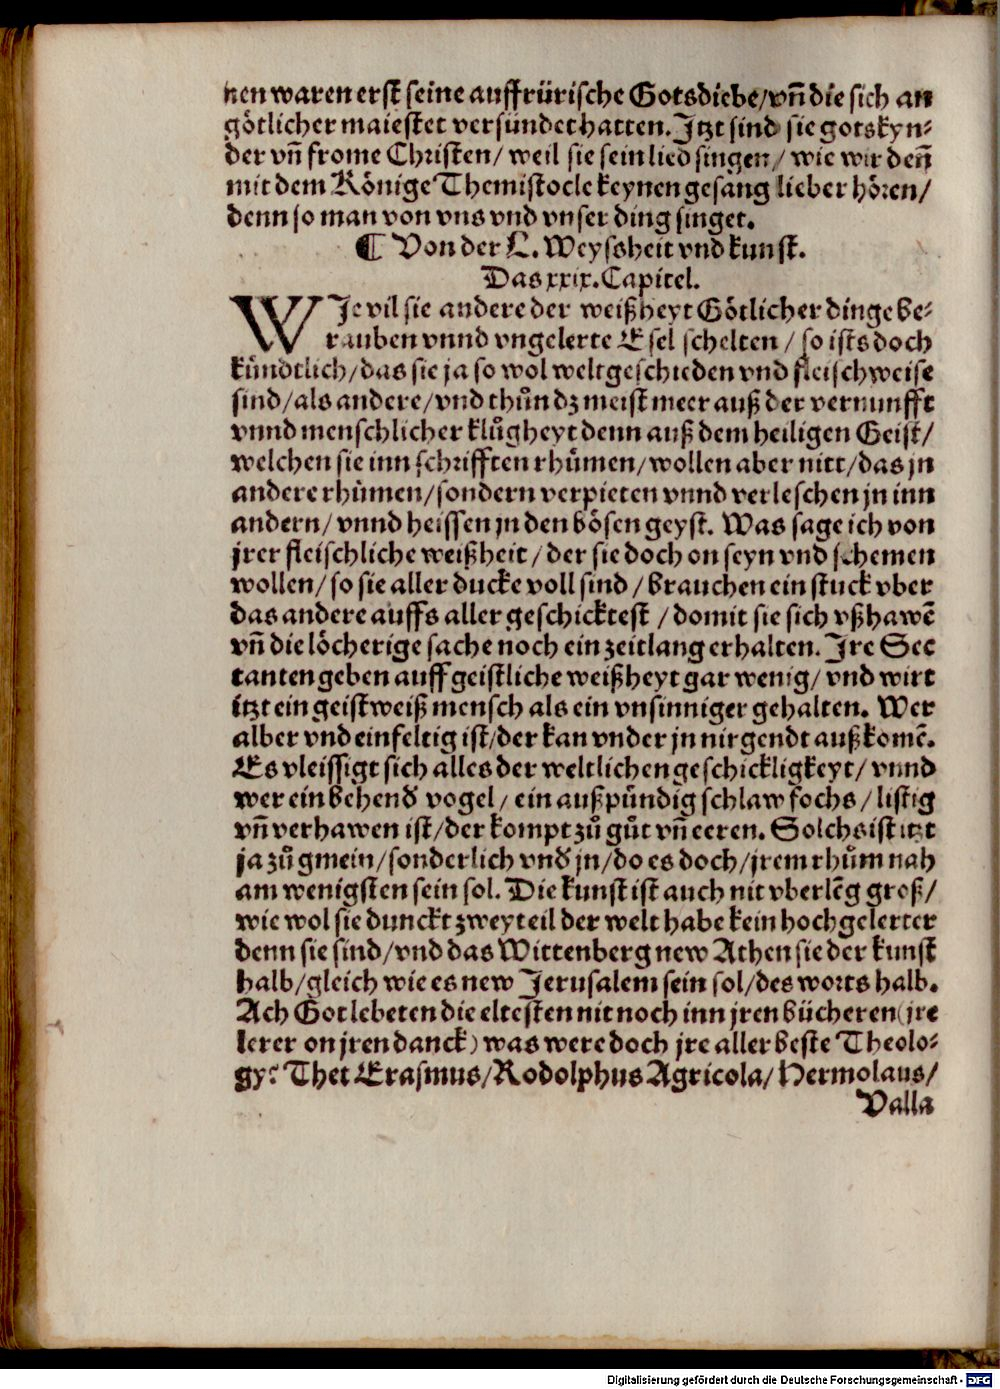 nen waren erst seine auffrürische Gotsdiebe/vn̄ die sich an
götlicher maiestet versündet hatten. Jtzt sind sie gotskyn⸗
der vn̄ frome Christen/ weil sie sein lied singen/ wie wir den̄
mit dem Könige Themistocle keynen gesang lieber hören/
denn so man von vns vnd vnser ding singet.
¶ Von der L. Weyssheit vnd kunst.
Das xxix. Capitel.
WJe vil sie andere der weißheyt Götlicher dinge be⸗
rauben vnnd vngelerte Esel schelten / so ists doch
kündtlich/das sie ja so wol weltgeschieden vnd fleischweise
sind/als andere/vnd thůn dz meist meer auß der vernunfft
vnnd menschlicher klůgheyt denn auß dem heiligen Geist/
welchen sie inn schrifften rhümen/wollen aber nitt/das jn
andere rhümen/sondern verpieten vnnd verleschen jn inn
andern/ vnnd heissen jn den bösen geyst. Was sage ich von
jrer fleischliche weißheit/der sie doch on seyn vnd schemen
wollen/ so sie aller ducke voll sind / brauchen ein stuck vber
das andere auffs aller geschicktest / domit sie sich vßhawē
vn̄ die löcherige sache noch ein zeitlang erhalten. Jre Sec
tanten geben auff geistliche weißheyt gar wenig/ vnd wirt
itzt ein geistweiß mensch als ein vnsinniger gehalten. Wer
alber vnd einfeltig ist/der kan vnder jn nirgendt außkomē.
Es vleissigt sich alles der weltlichen geschickligkeyt/ vnnd
wer ein behend vogel/ ein außpündig schlaw fochs/ listig
vn̄ verhawen ist/der kompt zů gůt vn̄ eeren. Solchs ist itzt
ja zů gmein/sonderlich vnd jn/do es doch/jrem rhům nah
am wenigsten sein sol. Die kunst ist auch nit vberlēg groß/
wie wol sie dunckt zwey teil der welt habe kein hochgelerter
denn sie sind/vnd das Wittenberg new Athen sie der kunst
halb/gleich wie es new Jerusalem sein sol/des worts halb.
Ach Got lebeten die eltesten nit noch inn jren bücheren(jre
lerer on jren danck) was were doch jre aller beste Theolo⸗
gy? Thet Erasmus/Rodolphus Agricola/Hermolaus/
Valla
Digitalisierung gefördert durch die Deutsche Forschungsgemeinschaft - DFG